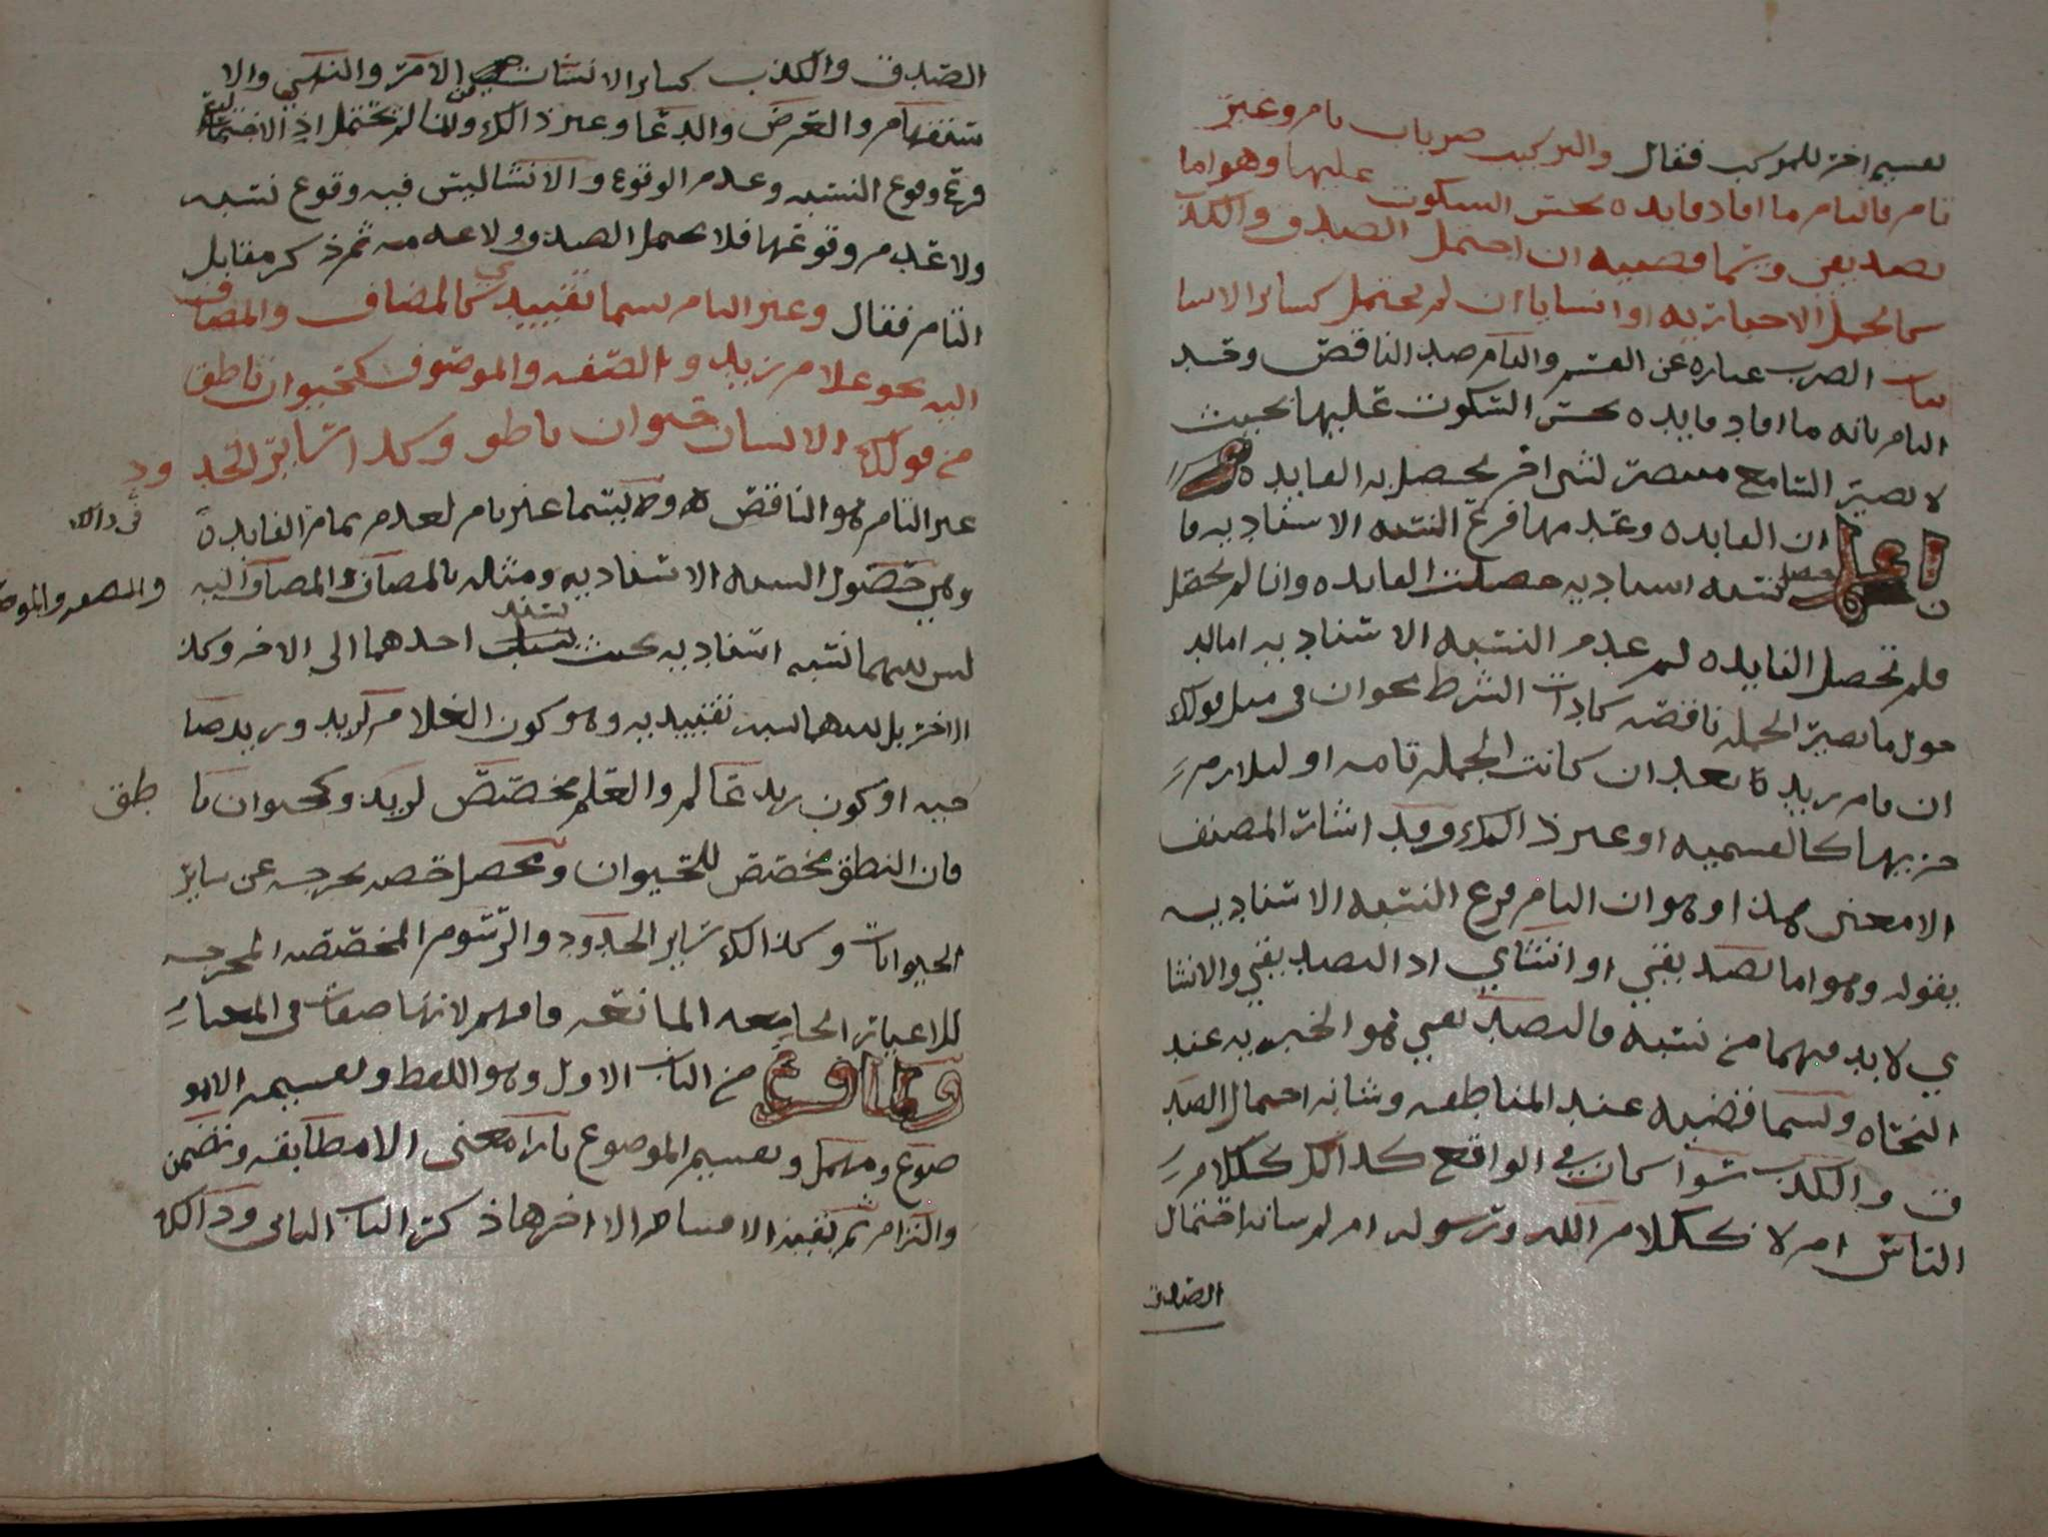 تقسيم اخر للمركب فقال والتركيب ضربان تام وغير
تام فالتام ما افاد فايده يحسن السكوت عليها وهو اما
تصديقي ويسما قضييه ان احتمل الصدق والكذ
كالجمل الاخباريه او انشايا ان لم يحتمل كساير الانشا
يات الضرب عباره عن القسم والتام ضد الناقص وقد
التام بانه ما افاد فايده يحسن السكوت عليها بحيث
لا يصير السامع منتضر لشي اخر يحصل به الفايده
اعلم ان الفايده وعدمها فرع النسبه الاسناديه فا
ن حصل نسبه اسناديه حصلت الفايده وان لم يحصل
فلم تحصل الفايده لعدم النسبه الاسناديه اما لد
خول ما يصير الجمله ناقصه كادات الشرط نحو ان في مثل قولك
ان قام زيد بعد ان كانت الجمله تامه او لتلازم
جزييها كالقسميه او غير ذالك وقد اشار المصنف
الا معنى هذا وهو ان التام فرع النسبه الاسناديه
بقوله وهو اما تصديقي او انشاي اذ التصديقي والانشا
ي لا بد فيهما من نسبه فالتصديقي هو الخبريه عند
النحاه ويسما قضيه عند المناطقه وشانه احتمال الصد
ق والكذب سوا كان في الواقع كذالك ككلام
الناس ام لا ككلام الله ورسوله ام لم شانه احتمال
الصدق
الصدق والكذب كساير الانشات من الامر والنهي والا
ستفهام والعرض والدعا وغير ذالك وانما لم تحتمل اذ الاحتمالية
فرع وقوع النسبه وعدم الوقوع والانشا ليس فيه وقوع نسبه
ولا عدم وقوعها فلا يحتمل الصدق ولا عدمه ثم ذكر مقابل
التام فقال وغير التام يسما تقييدي كالمضاف والمضاف
اليه نحو غلام زيد والصفه والموصوف كحيوان ناطق
من قولك الانسان حيوان ناطق وكذا ساير الحدود
غير التام هو الناقص ويسما غير تام لعدم تمام الفايدة في ذالك
وهي حصول النسبه الاسناديه ومثاله بالمضاف والمضاف اليه والصفه والموصو
ليس بينهما نسبه اسناديه بحيث يسند احدهما الى الاخر وكذ
الاخر بل بينهما نسبه تقييديه وهو كون الغلام لزيد وزيد صا
حبه او كون زيد عالم والعلم مخصص لزيد وكحيوان نا طق
فان النطق مخصص للحيوان ويحصل خصه يخرجه عن ساير
الحيوانات وكذالك ساير الحدود والرسوم المخصصه المخرجه
للاغيار الجامعه المانعه فافهم لانها صفات في المعنا
ولما فرغ من الباب الاول وهو اللفظ وتقسيمه الا مو
ضوع ومهمل وتقسيم الموضوع بازا معنى الا مطابقه وتضمن
والتزام ثم بقية الاقسام الا اخرها ذكر الباب الثاني وذالك